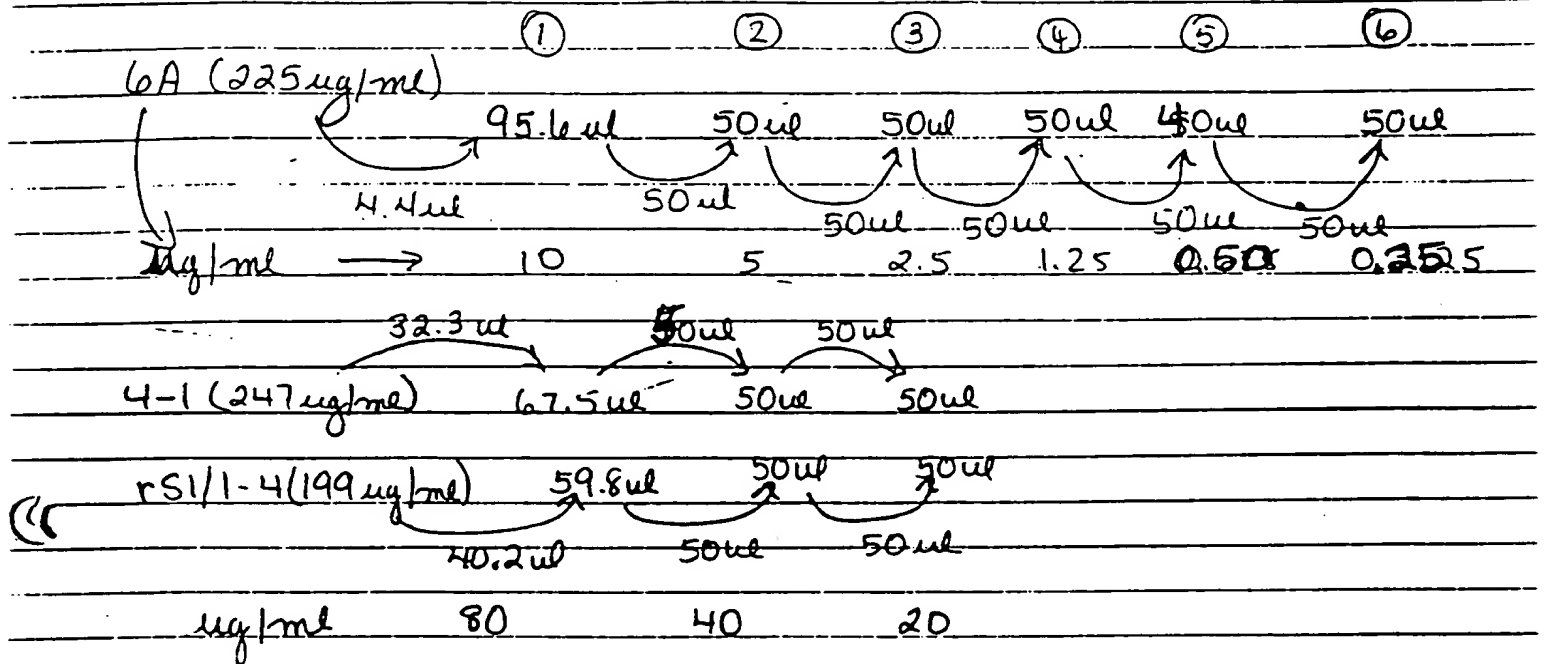 ① ② ③ ④ ⑤ ⑥
6A (225 ug/ml)
95.6 ul 50 ul 50ul 50ul 50ul 50ul
4.4 ul 50 ul 50ul 50ul 50ul 50ul
ug/ml → 10 5 2.5 1.25
32.3 ul 50ul 50ul
4-1 (247 ug/ml) 67.5 ul 50ul 50ul
rS1/1-4 (199 ug/ml) 59.8ul 50ul 50ul
40.2 ul 50ul 50 ul
ug/ml 80 40 20